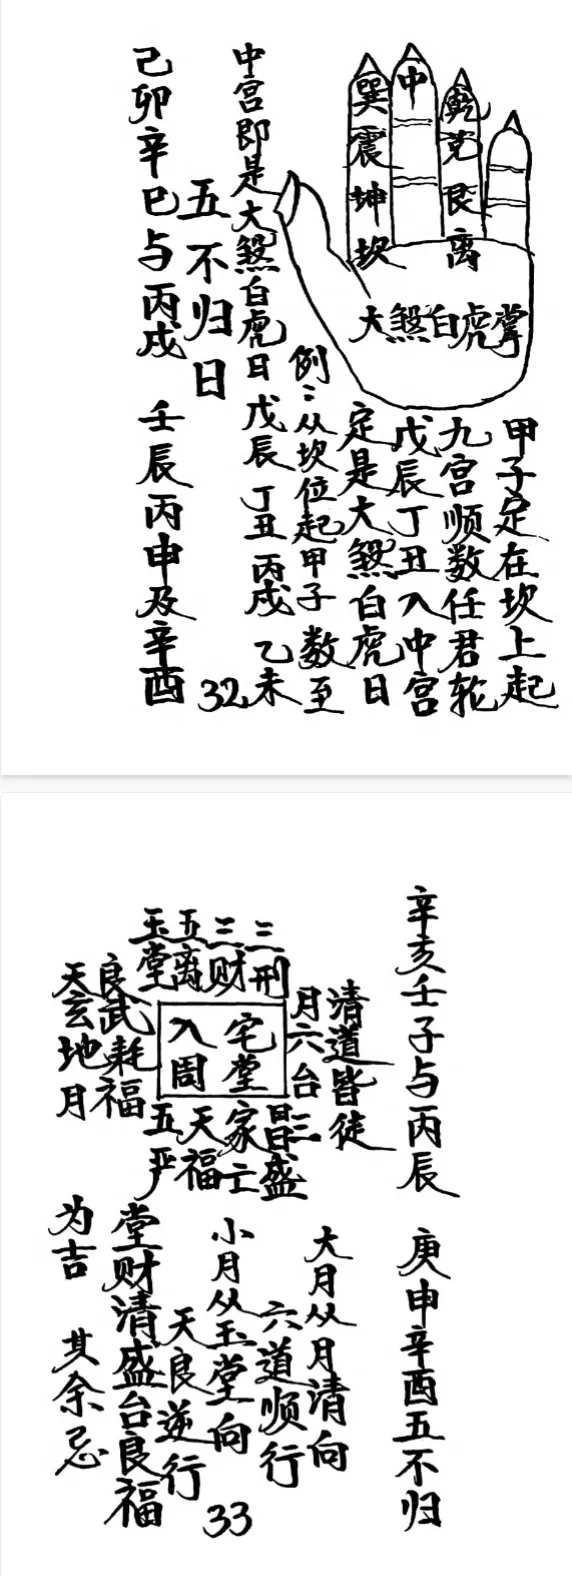 巽震坤坎
中
乾兑艮离
大煞白虎掌
甲子定在坎上起
九宫顺数任君轮
戊辰丁丑入中宫
定是大煞白虎日
例:从坎位起甲子 数至
中宫即是大煞白虎日 戊辰 丁丑 丙戌 乙未
五不归日
己卯辛巳与丙戌 壬辰丙申及辛酉
32
辛亥壬子与丙辰 庚申辛酉五不归
清道皆徒
月六台
三刑
三财
五离
玉堂
良武耗福
天玄地月
宅堂
入周
三盛
家亡
天福
五严
大月从月清向
六道顺行
小月从玉堂向
天良逆行
堂财清盛台良福
为吉 其余忌
33